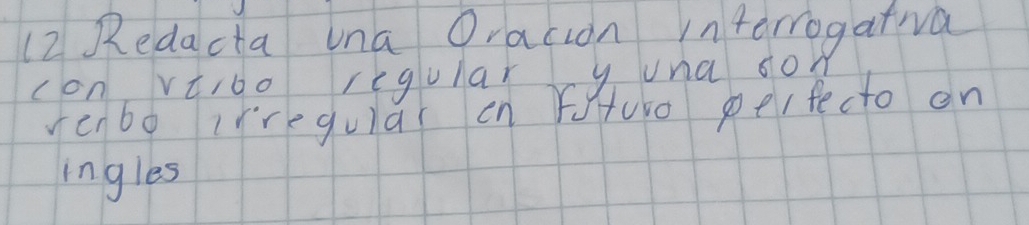 12 Redacta una Oracion interrogativa
con verbo regular y una con
verbo irregular en Futuro perfecto en
ingles